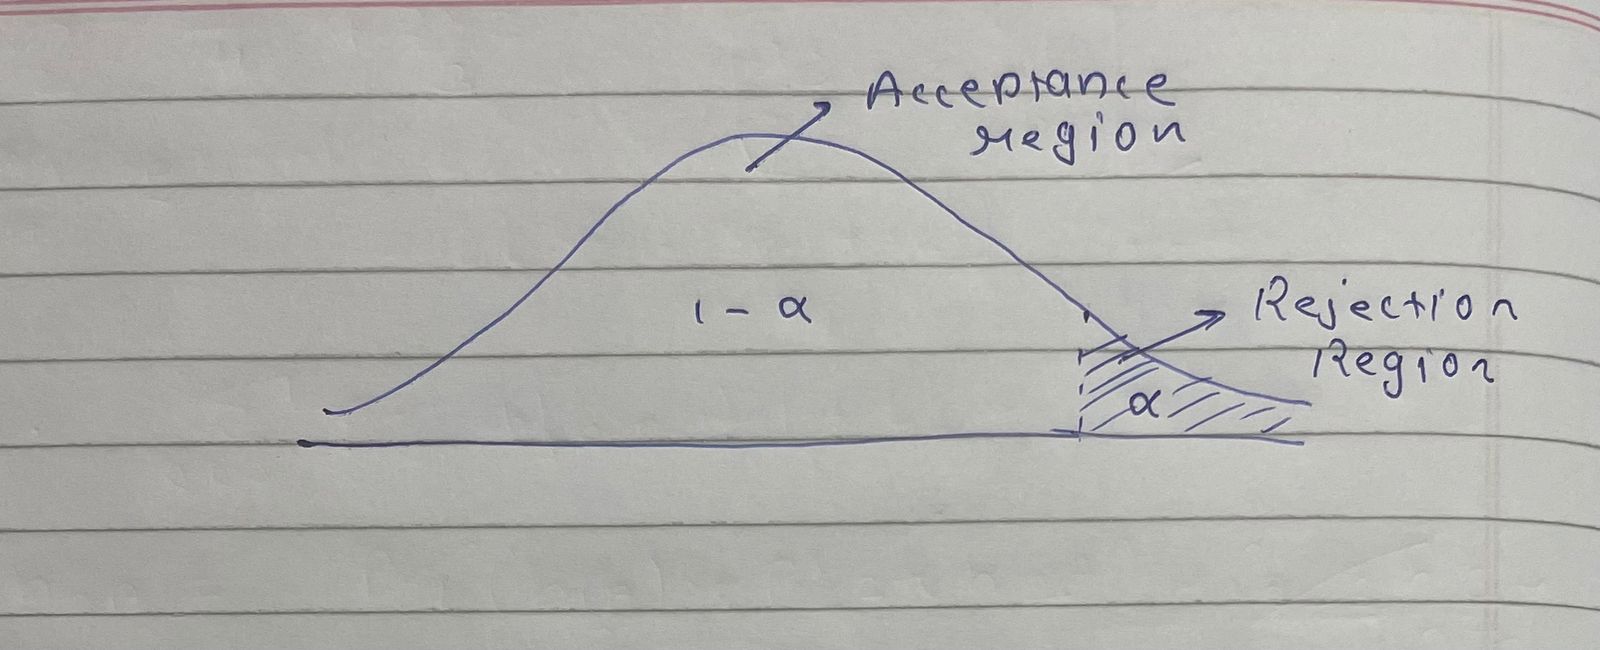 Acceptance
region
1 - α
Rejection
Region
α